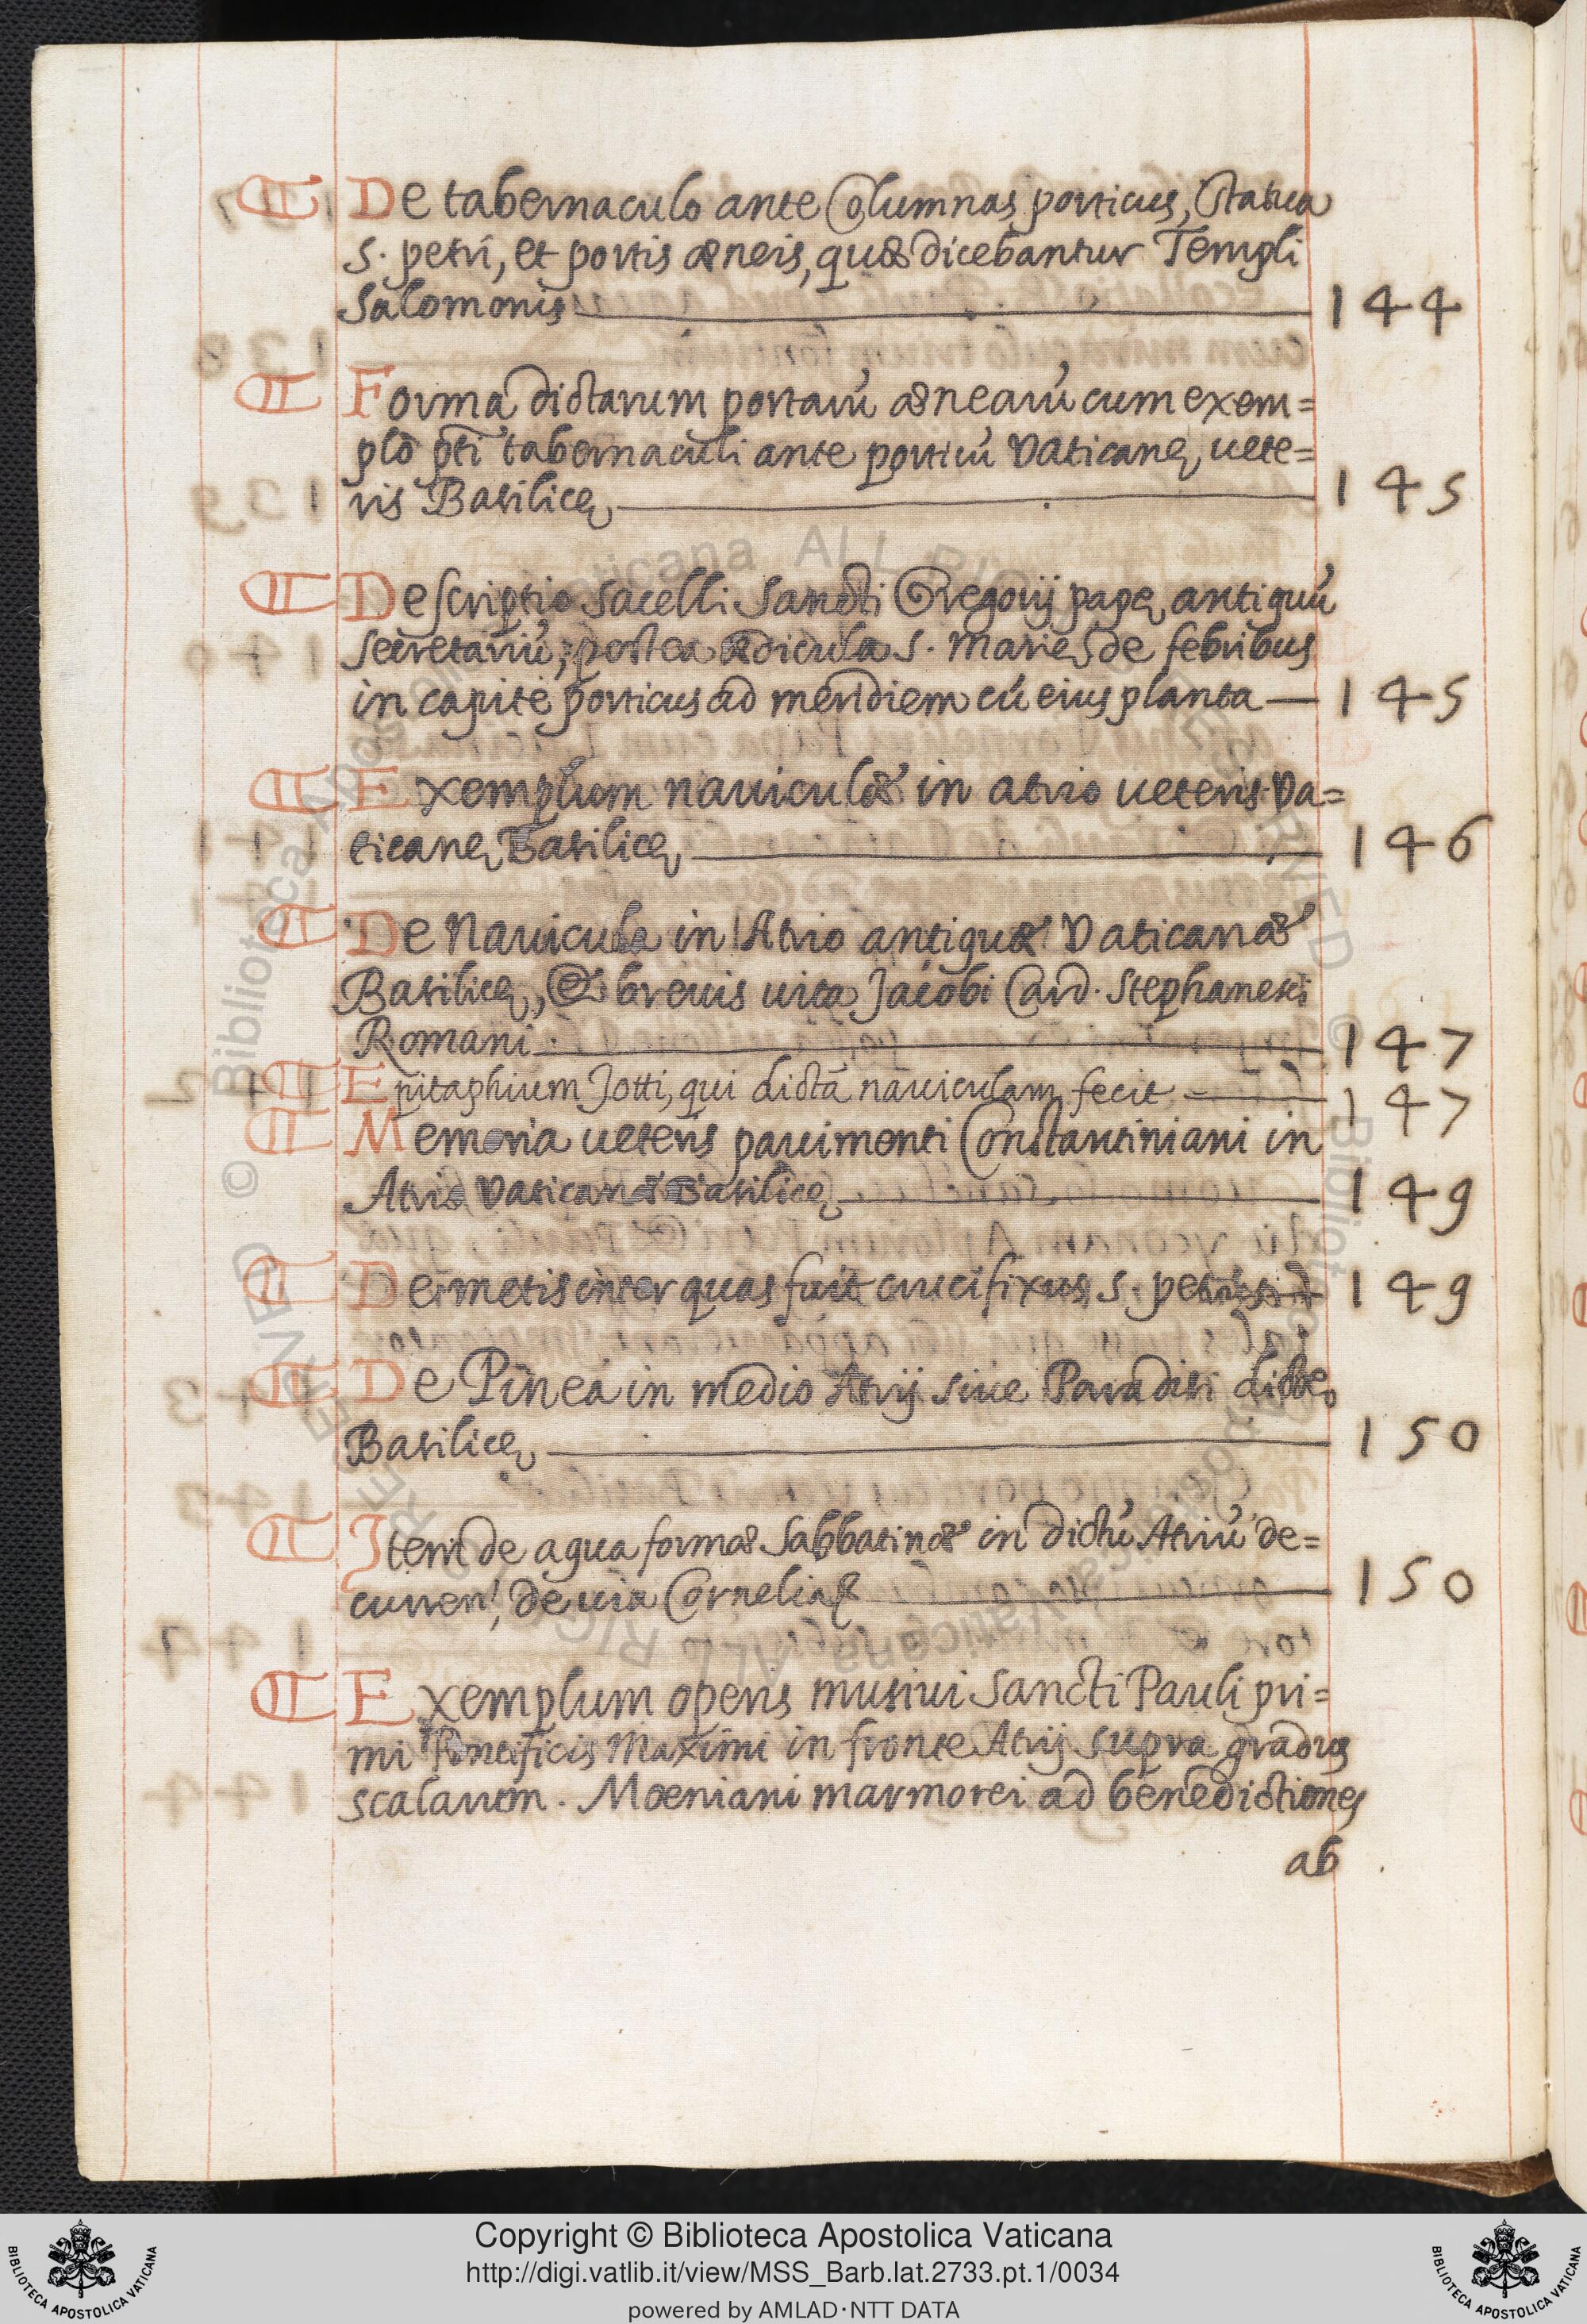 ¶ De tabernaculo ante Columnas porticus, Statua
s. petri, et portis æneis, quæ dicebantur Templi
Salomonis 144
¶ Forma dictarum portarū ænearū cum exem=
plo p̄ti tabernaculi ante porticū Vaticanę uete=
ris Basilicę 145
¶ Descriptio sacelli Sancti Gregorij papę antiquū
secretariū, postea ædicula s. Marię de febribus
in capite porticus ad meridiem cū eius planta 145
¶ Exemplum nauiculæ in atrio ueteris Va=
ticanę Basilicę 146
¶ De Nauicula in Atrio antiquæ Vaticanæ
Basilicę, & breuis uita Jacobi Card. Stephanesci
Romani 147
¶ Epitaphium Jotti, qui dictā nauiculam fecit 147
¶ Memoria ueteris pauimenti Constantiniani in
Atrio Vaticanæ Basilicę 149
¶ De metis inter quas fuit crucifixus s. petrus 149
¶ De Pinea in medio Atrij siue Paradisi dictę
Basilicę 150
¶ Item de aqua formæ Sabbatinæ in dictū Atriū de=
curren', de uia Cornelia 150
¶ Exemplum operis musiui Sancti Pauli pri=
mi Pontificis Maximi in fronte Atrij supra gradus
scalarum. Moeniani marmorei ad benedictiones
ab
Copyright © Biblioteca Apostolica Vaticana
http://digi.vatlib.it/view/MSS_Barb.lat.2733.pt.1/0034
powered by AMLAD·NTT DATA
BIBLIOTECA APOSTOLICA VATICANA
BIBLIOTECA APOSTOLICA VATICANA